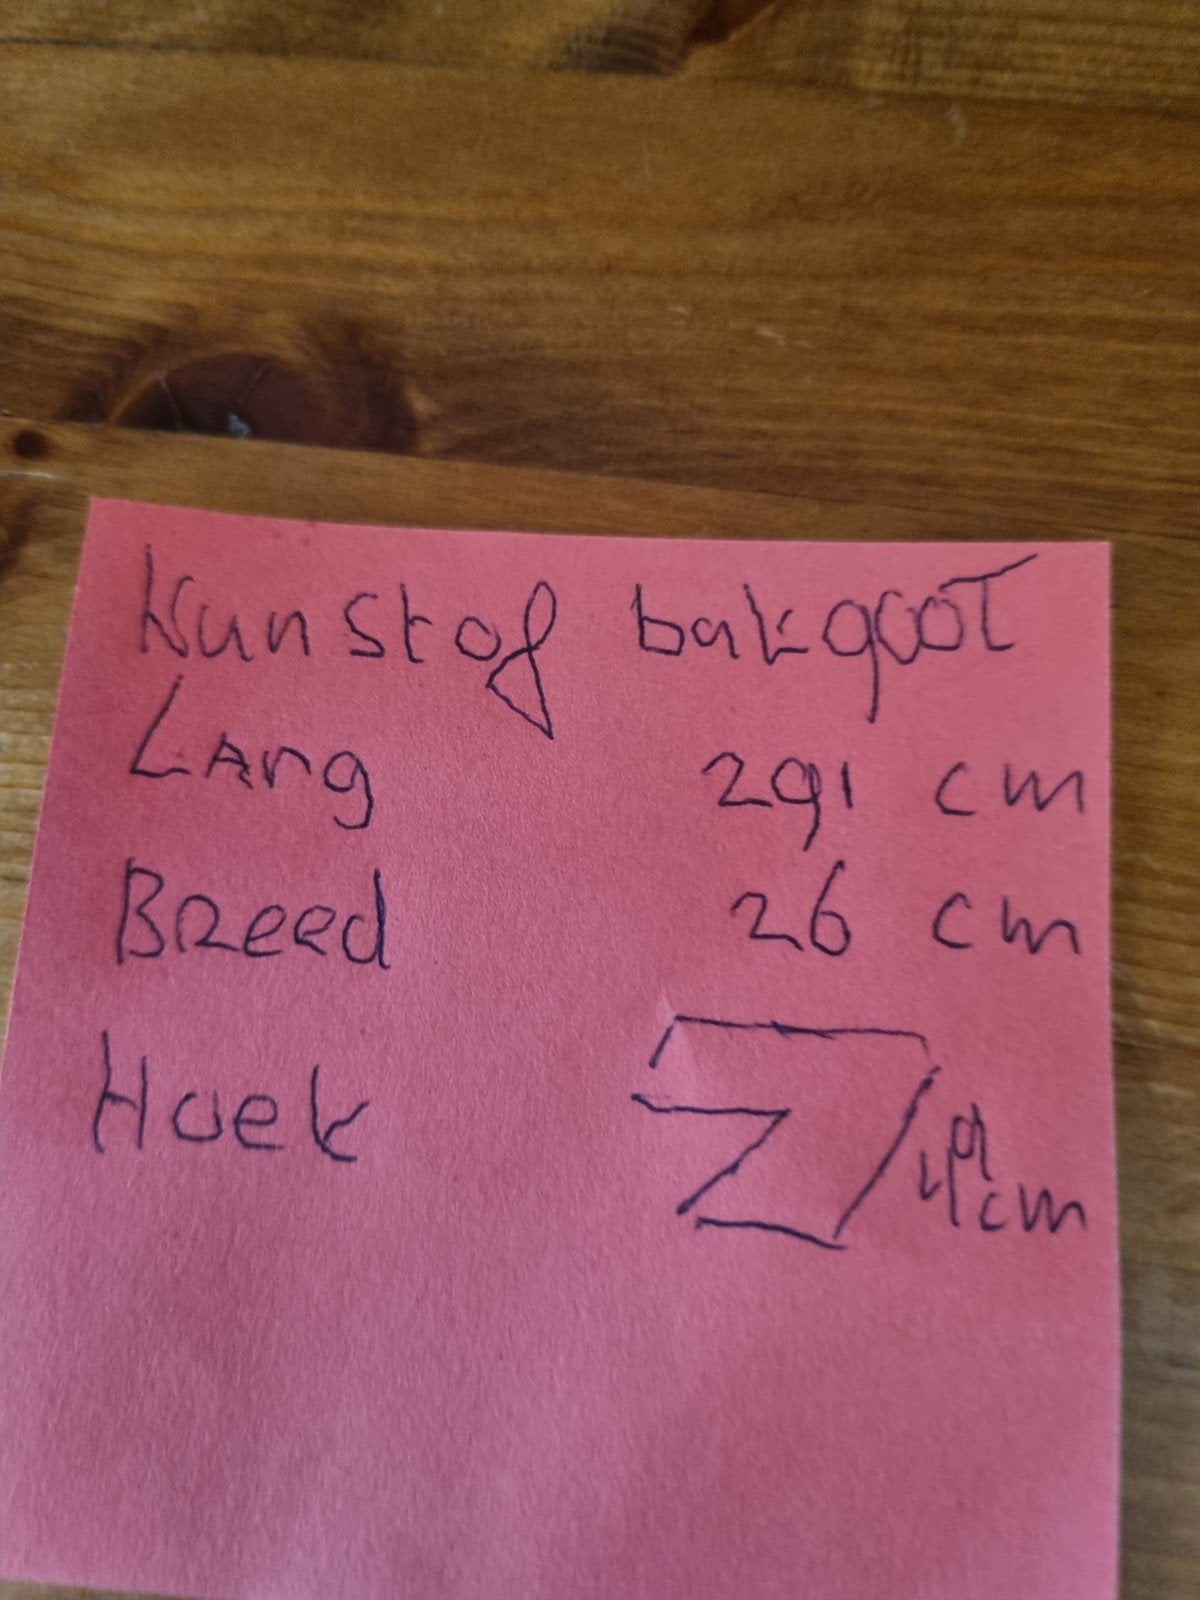 Kunstof bakgoot
Lang 291 cm
Breed 26 cm
Hoek 49 cm